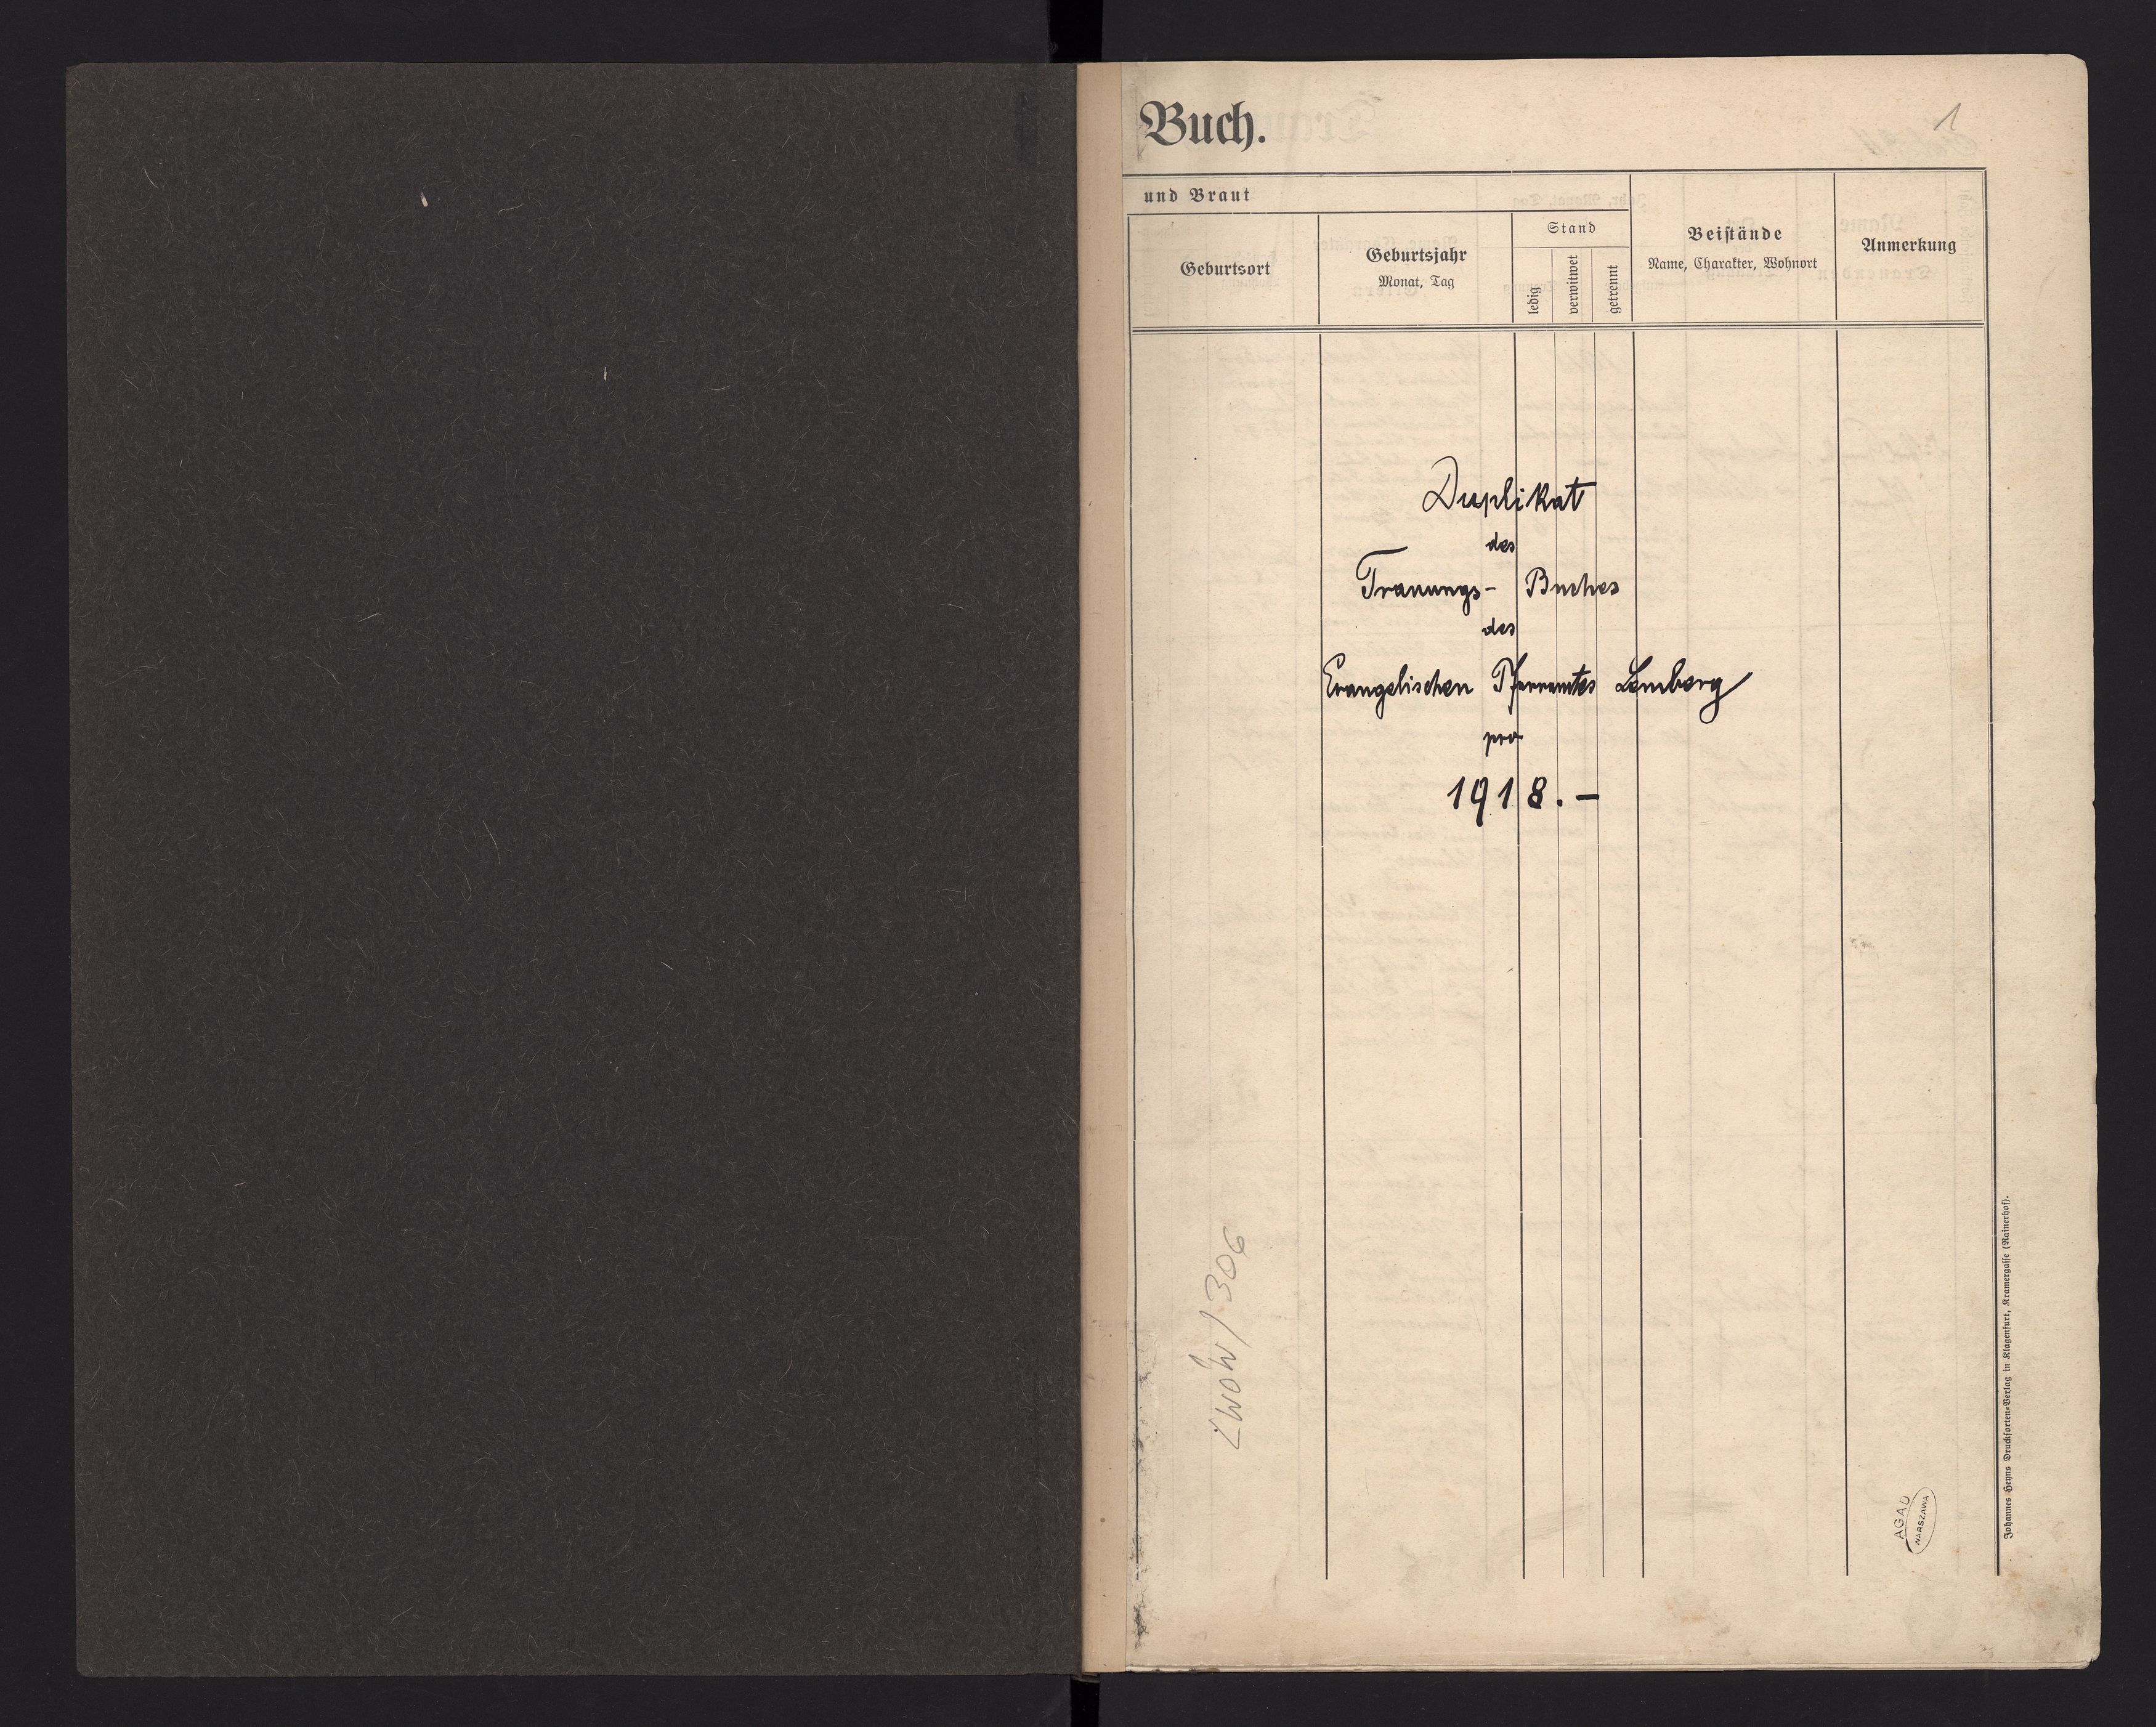 Buch.
1
und Braut
Geburtsort
Geburtsjahr
Monat, Tag
Stand
ledig
verwitwet
getrennt
Beistände
Name, Charakter, Wohnort
Anmerkung
Duplikat
des
Trauungs- Buches
des
Evangelischen Pfarramtes Lemberg
pro
1918. –
LWÓW / 306
AGAD
WARSZAWA
Johannes Heyns Drucksorten-Verlag in Klagenfurt, Kramergasse (Rainerhof).